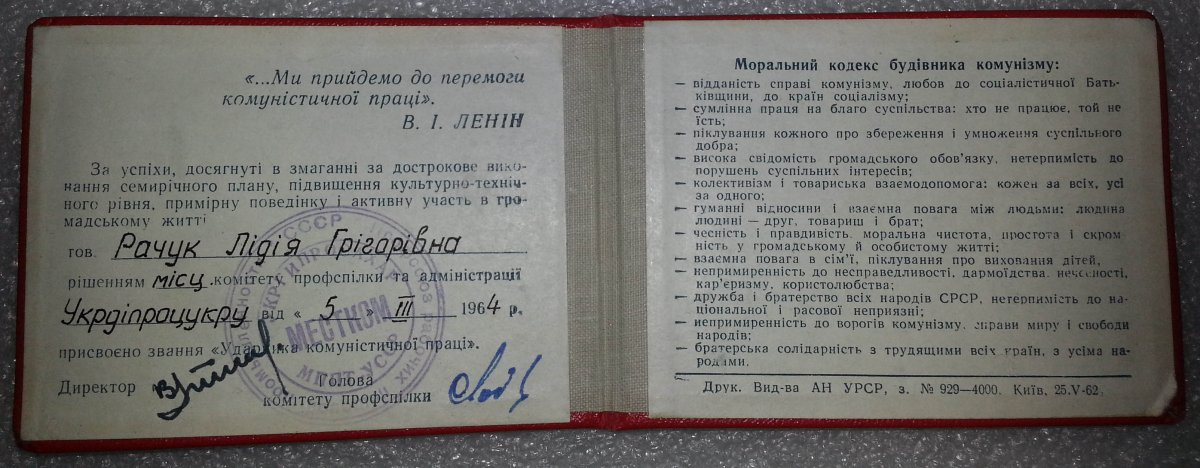 «...Ми прийдемо до перемоги
комуністичної праці».
В. І. ЛЕНІН
За успіхи, досягнуті в змаганні за дострокове вико-
нання семирічного плану, підвищення культурно-техніч-
ного рівня, примірну поведінку і активну участь в гро-
мадському житті
тов. Рачук Лідія Грігарівна
рішенням місц. комітету профспілки та адміністрації
Укрдіпрацукру від « 5 » III 1964 р.
присвоєно звання «Ударника комуністичної праці».
Директор
Голова
комітету профспілки
МЕСТКОМ
Моральний кодекс будівника комунізму:
— відданість справі комунізму, любов до соціалістичної Бать-
ківщини, до країн соціалізму;
— сумлінна праця на благо суспільства: хто не працює, той не
їсть;
— піклування кожного про збереження і умноження суспільного
добра;
— висока свідомість громадського обов'язку, нетерпимість до
порушень суспільних інтересів;
— колективізм і товариська взаємодопомога: кожен за всіх, усі
за одного;
— гуманні відносини і взаємна повага між людьми: людина
людині — друг, товариш і брат;
— чесність і правдивість, моральна чистота, простота і скром-
ність у громадському й особистому житті;
— взаємна повага в сім'ї, піклування про виховання дітей,
— непримиренність до несправедливості, дармоїдства, нечесності,
кар'єризму, користолюбства;
— дружба і братерство всіх народів СРСР, нетерпимість до на-
ціональної і расової неприязні;
— непримиренність до ворогів комунізму, справи миру і свободи
народів;
— братерська солідарність з трудящими всіх країн, з усіма на-
родами.
Друк. Вид-ва АН УРСР, з. № 929—4000. Київ, 25.V-62.